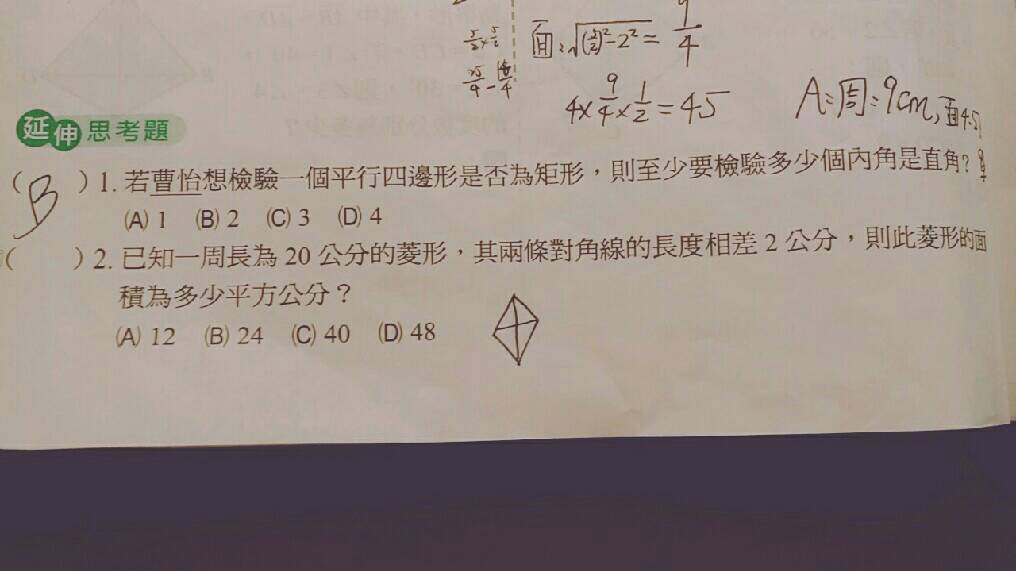 面:√(5/2)²-2² = 9/4
4×9/4×1/2=45
A=周=9cm,面4.5
延伸思考題
(B) 1. 若曹怡想檢驗一個平行四邊形是否為矩形，則至少要檢驗多少個內角是直角？
(A) 1 (B) 2 (C) 3 (D) 4
( ) 2. 已知一周長為 20 公分的菱形，其兩條對角線的長度相差 2 公分，則此菱形的面
積為多少平方公分？
(A) 12 (B) 24 (C) 40 (D) 48